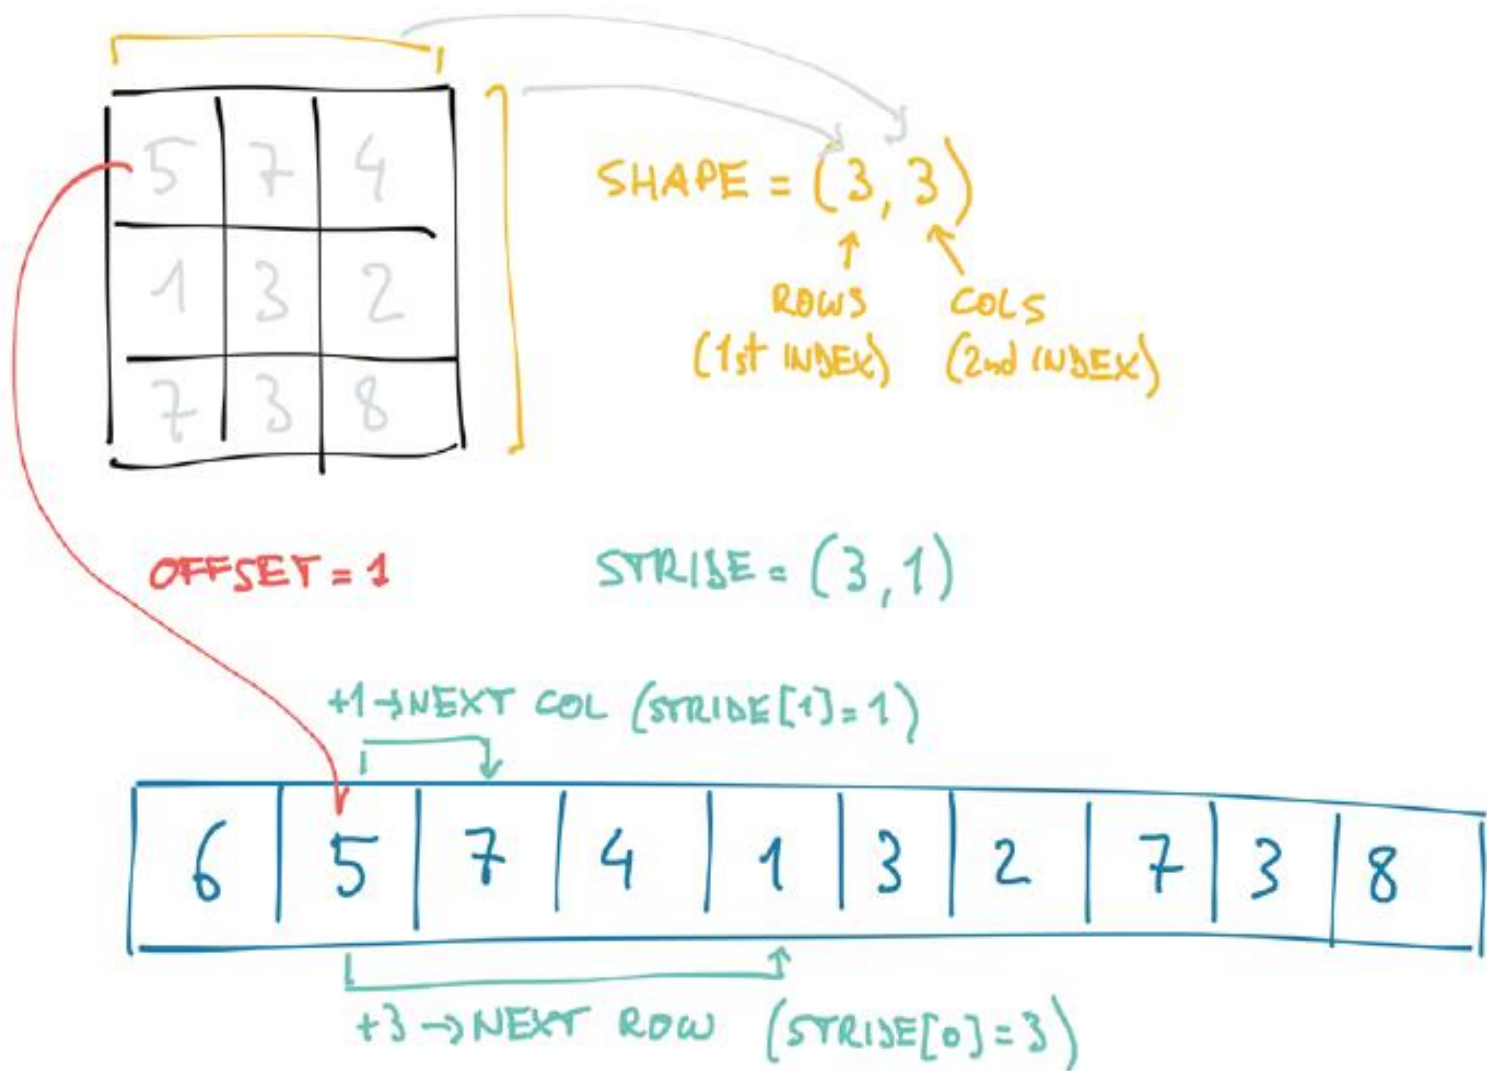 5 7 4
SHAPE = (3, 3)
1 3 2
ROWS
(1st INDEX)
COLS
(2nd INDEX)
7 3 8
OFFSET = 1
STRIDE = (3, 1)
+1→NEXT COL (STRIDE[1]=1)
6 5 7 4 1 3 2 7 3 8
+3→NEXT ROW (STRIDE[0]=3)